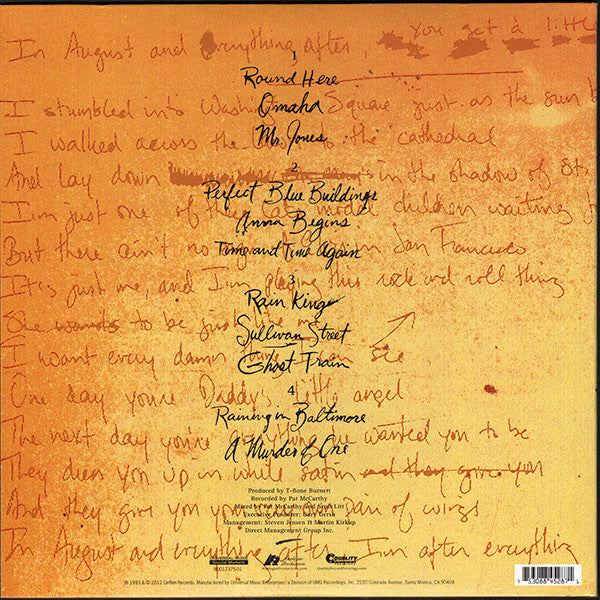 In August and Everything after, you get a little
1
Round Here
I stumbled into Washington Square just as the sun b
Omaha
I walked across the to the cathedral
Mr. Jones
And lay down in the shadow of St.
2
Perfect Blue Buildings
I'm just one of these model children waiting f
Anna Begins
But there ain't no in San Francisco
Time and Time Again
It's just me, and I'm playing this rock and roll thing
3
Rain King
She wants to be just like me
Sullivan Street
I want every damn see
Ghost Train
One day you're Daddy's little angel
4
Raining in Baltimore
The next day you're everything he wanted you to be
A Murder of One
They dress you up in white satin and they give you
And they give you your own pair of wings
Produced by T-Bone Burnett
Recorded by Pat McCarthy
Mixed by Pat McCarthy and Scott Litt
Executive Producer: Gary Gersh
Management: Steven Jensen & Martin Kirkup
Direct Management Group Inc.
In August and everything after I'm after everything
Special Markets
B001237501
Analogue Productions
AnalogueProductions.com
Quality
QualityRecordPressings.com
℗ 1993 & © 2012 Geffen Records. Manufactured by Universal Music Enterprises, a Division of UMG Recordings, Inc. 2220 Colorado Avenue, Santa Monica, CA 90404
7 53088 45287 1